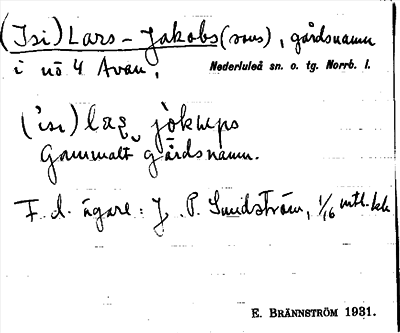 (Isi) Lars-Jakobs(sons), gårdsnamn
i nö 4 Avan, Nederluleå sn. o. tg. Norrb. l.
Gammalt gårdsnamn.
F. d. ägare: J. P. Sundström, 1/16 mtl. kk
E. BRÄNNSTRÖM 1931.